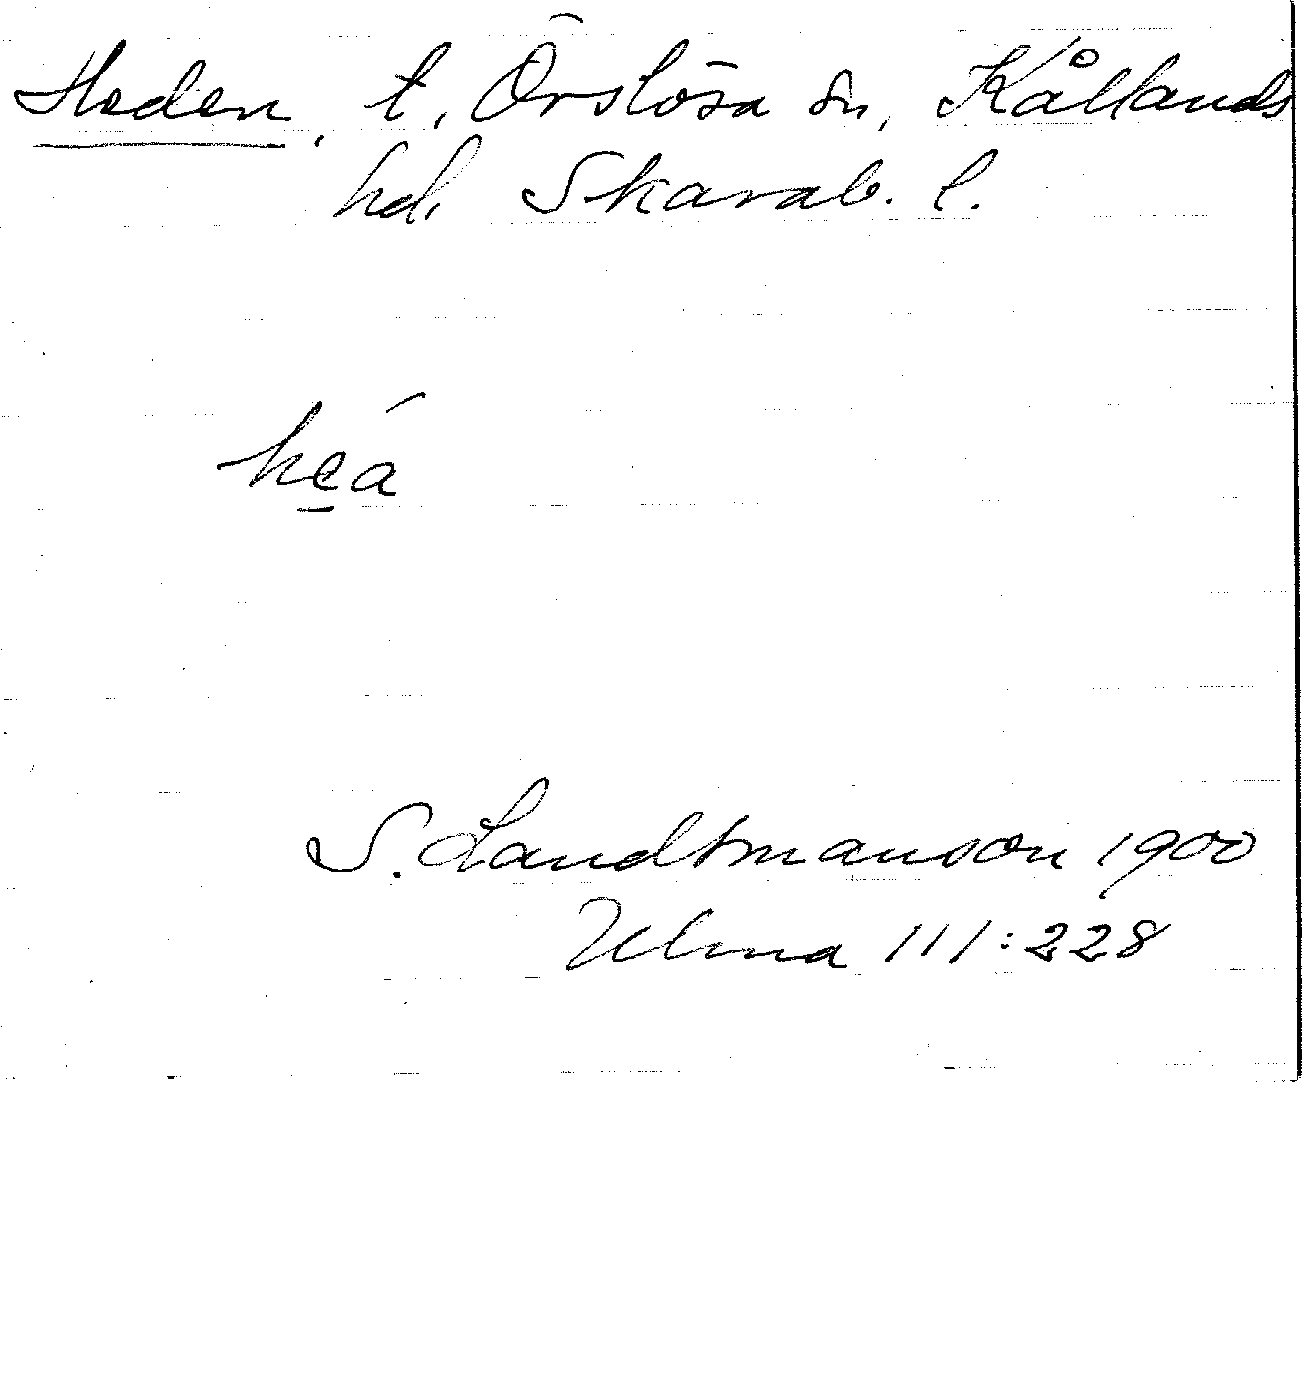 Heden, t. Örslösa sn, Kållands
hd. Skarab. l.
he̱á
S. Landtmanson 1900
Ulma 111:228